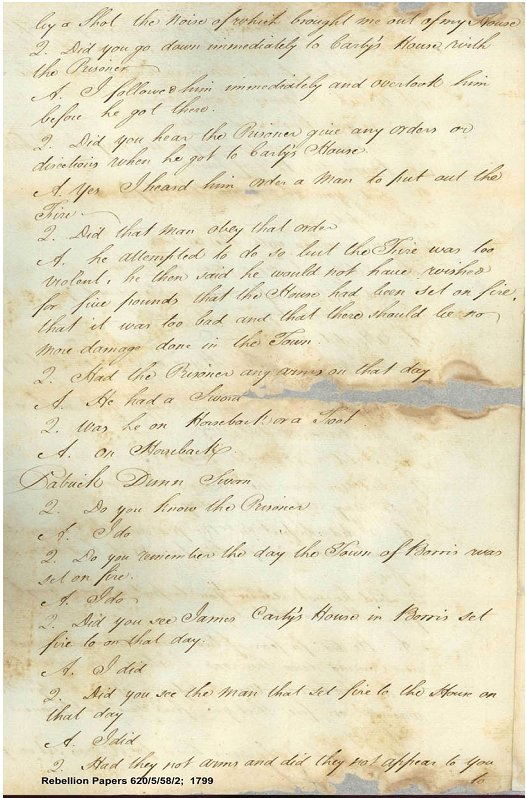 by a Shot the Noise of which brought me out of my House
Q. Did you go down immediately to Carty's House with
the Prisoner
A. I followed him immediately and overtook him
before he got there.
Q. Did you hear the Prisoner give any orders or
directions when he got to Carty's House
A Yes I heard him order a Man to put out the
Fire
Q. Did that man obey that order
A. he attempted to do so but the Fire was too
violent, he then said he would not have wished
for five pounds that the House had been set on fire,
that it was too bad and that there should be no
more damage done in the Town.
Q. Had the Prisoner any arms on that day
A. He had a Sword
Q. was he on Horseback or a Foot
A. on Horseback
Patrick Dunn Sworn
Q. Do you know the Prisoner
A. I do
Q. Do you remember the day the Town of Borris was
set on fire.
A. I do
Q. Did you see James Carty's House in Borris set
fire to on that day.
A. I did
Q. Did you see the man that set fire to the House on
that day
A. I did
Q. Had they not arms and did they not appear to you
to
Rebellion Papers 620/5/58/2; 1799